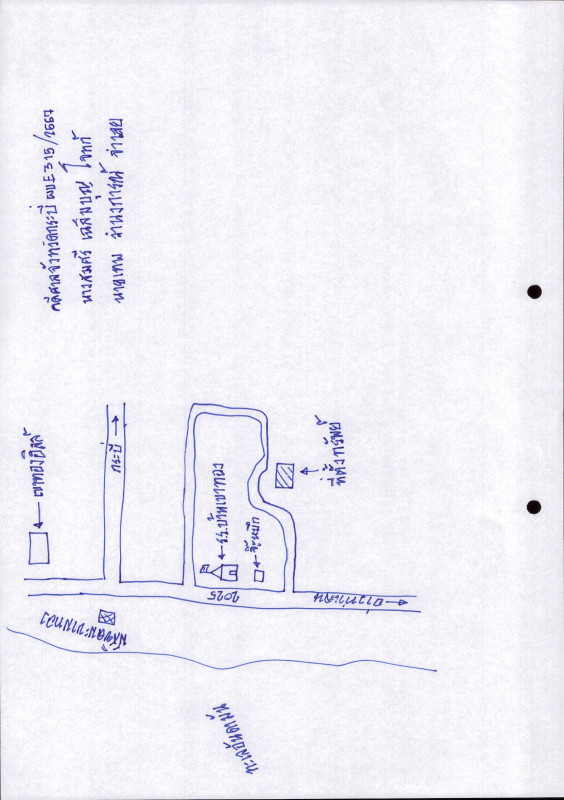 คดีศาลจังหวัดกระบี่ ผบE315/2567
นางสมศรี เฉลิมบุญ โจทก์
นายเทพ ชำนาญการณ์ จำเลย
เขาทองฮิลล์
กระบี่
ร.ร.บ้านเขาทอง
จ๊ะหมึก
ที่ตั้งทรัพย์
2025
อ่าวท่าเลน
มัสยิดมะขามทอง
ทะเลอันดามัน